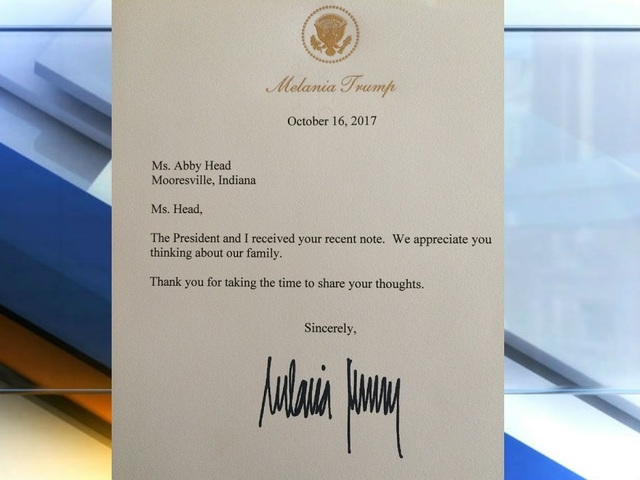 Melania Trump
October 16, 2017
Ms. Abby Head
Mooresville, Indiana
Ms. Head,
The President and I received your recent note. We appreciate you
thinking about our family.
Thank you for taking the time to share your thoughts.
Sincerely,
Melania Trump